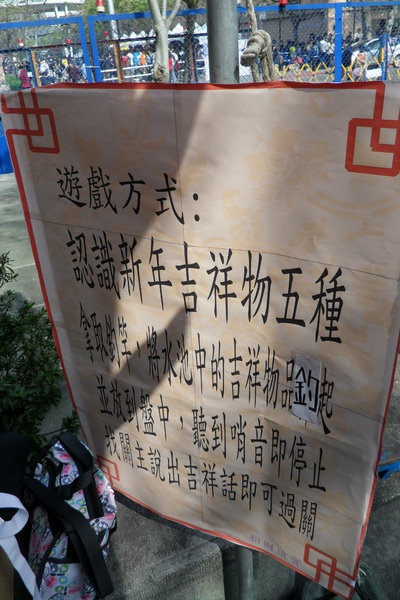 遊戲方式：
認識新年吉祥物五種
拿取釣竿，將水池中的吉祥物品釣起
並放到盤中，聽到哨音即停止
找關主說出吉祥話即可過關